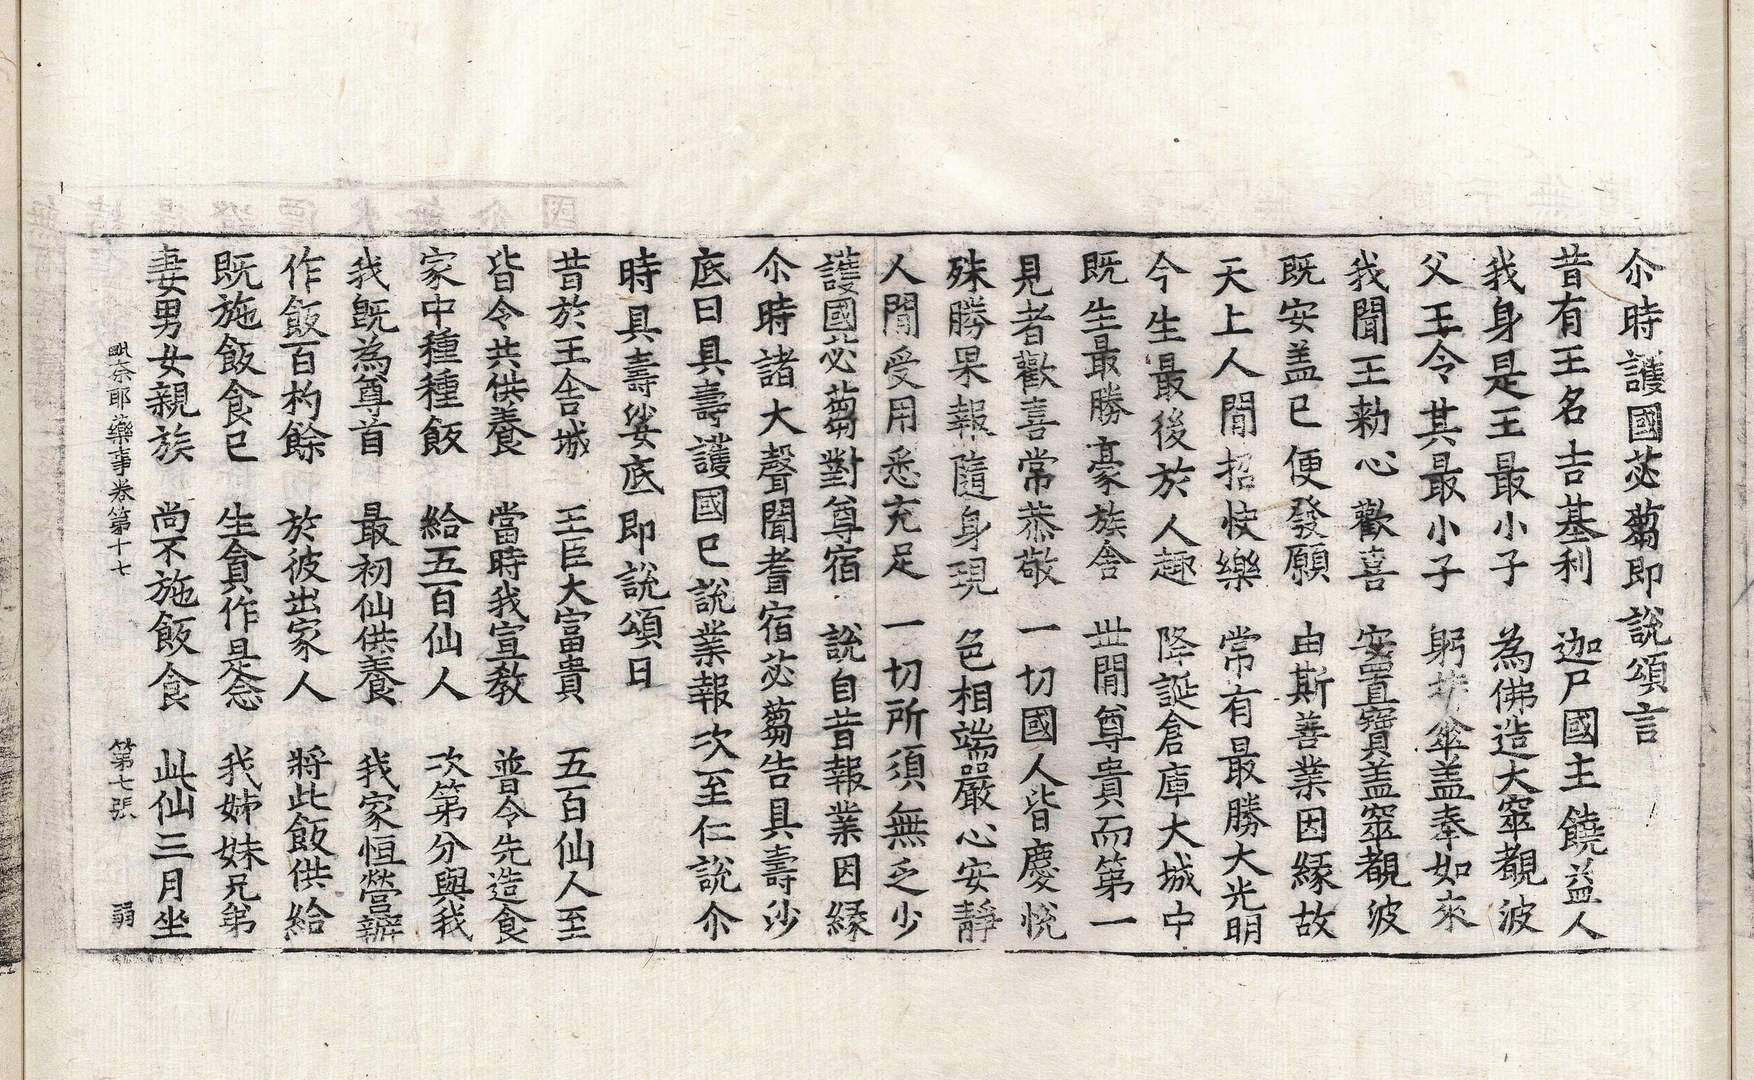 尒時護國苾蒭即說頌言
昔有王名吉基利 迦尸國主饒益人
我身是王最小子 為佛造大窣覩波
父王令其最小子 躬持傘盖奉如來
我聞王勑心歡喜 安置寶盖窣覩波
既安盖已便發願 由斯善業因緣故
天上人間招快樂 常有最勝大光明
今生最後於人趣 降誕倉庫大城中
既生最勝豪族舍 丗間尊貴而第一
見者歡喜常恭敬 一切國人皆慶悅
殊勝果報隨身現 色相端嚴心安靜
人間受用悉充足 一切所須無乏少
護國苾蒭對尊宿 說自昔報業因緣
尒時諸大聲聞耆宿苾蒭告具壽沙
底曰具壽護國已說業報次至仁說尒
時具壽娑底即說頌曰
昔於王舍城 王臣大富貴 五百仙人至
皆令共供養 當時我宣教 普令先造食
家中種種飯 給五百仙人 次第分與我
我旣為尊首 最初仙供養 我家恒營辦
作飯百杓餘 於彼出家人 將此飯供給
既施飯食已 生貪作是念 我姊妹兄弟
妻男女親族 尚不施飯食 此仙三月坐
毗奈耶藥事卷第十七 第七張 弱